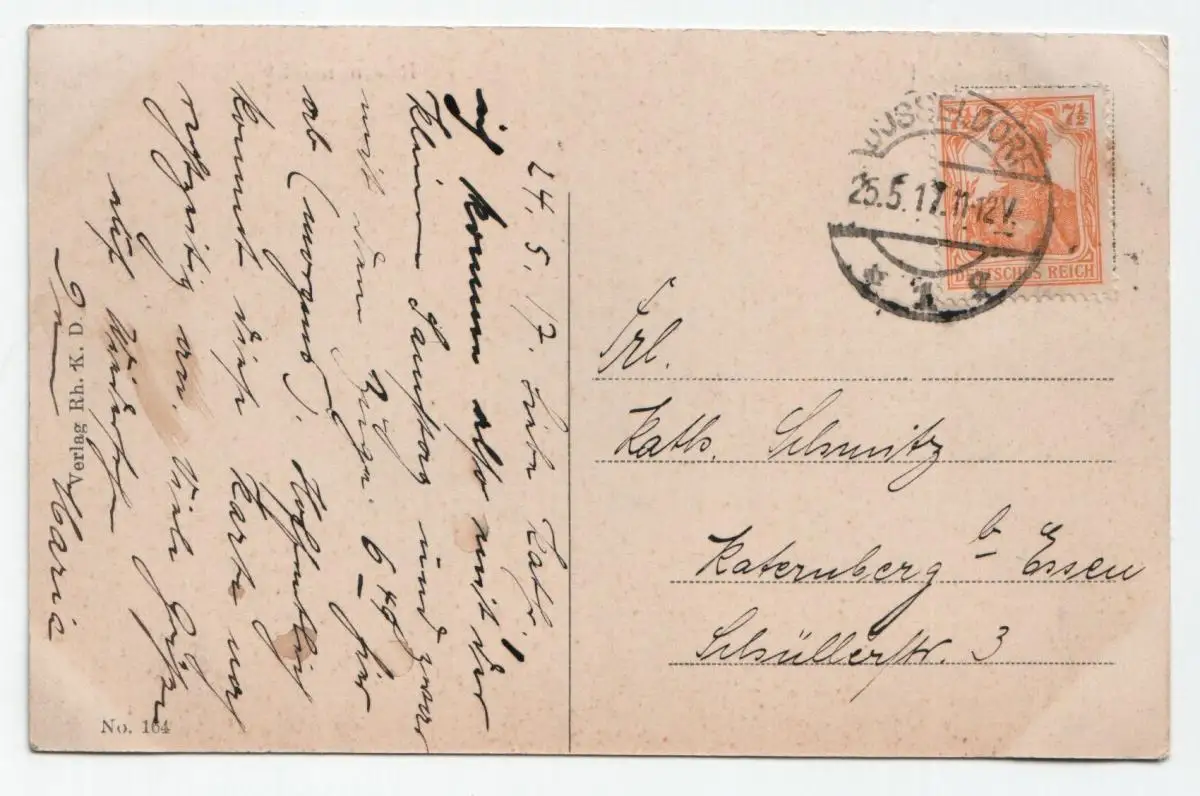 24. 5. 17. Liebe Kath.!
ich komme also mit der
Kleinen Samstag und zwar
mit dem Zuge 6 40 hier
ab (morgens). Hoffentlich
kommt diese Karte noch
rechtzeitig an. Viele Grüße
auf Wiedersehen
Maria
Verlag Rh. K. D.
No. 164
DÜSSELDORF
25.5.17.11-12V.
* 1 q
7½
DEUTSCHES REICH
Frl.
Kath. Schmitz
Katernberg b Essen
Schüllerstr. 3